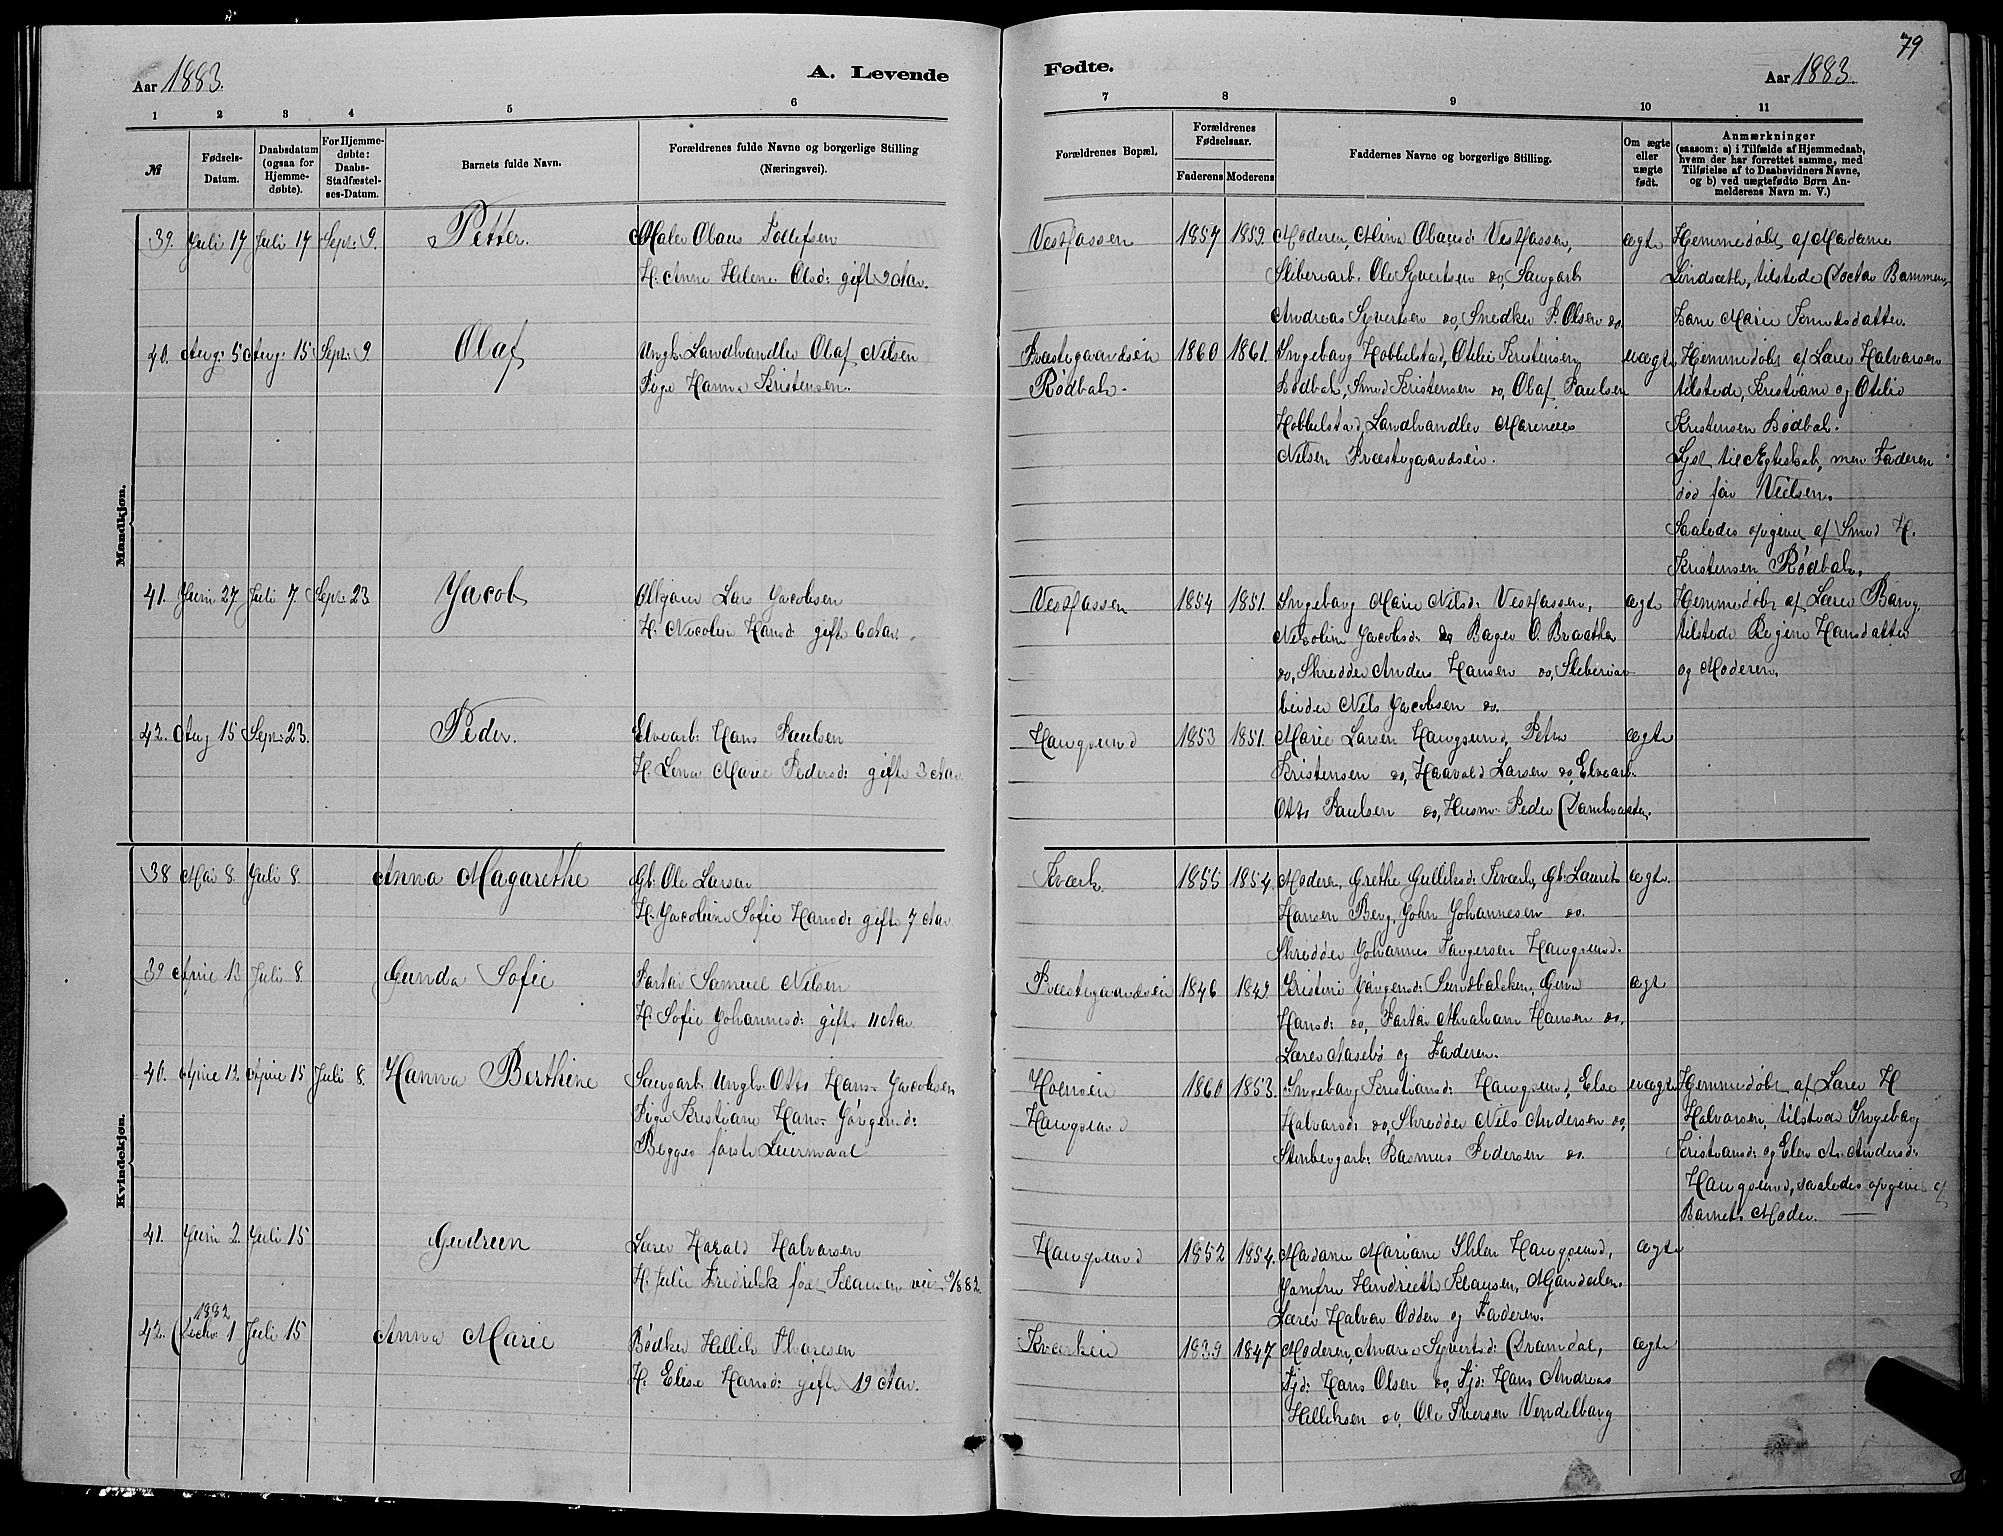 79
Aar 1883.
A. Levende
Fødte.
Aar 1883.
1 2 3 4 5 6 7 8 9 10 11
№
Fødsels-
Datum.
Daabsdatum
(ogsaa for
Hjemme-
døbte).
For Hjemme-
døbte:
Daabs-
Stadfæstel-
ses-Datum.
Barnets fulde Navn.
Forældrenes fulde Navne og borgerlige Stilling
(Næringsvei).
Forældrenes Bopæl.
Forældrenes
Fødselsaar.
Faderens Moderens
Faddernes Navne og borgerlige Stilling.
Om ægte
eller
uægte
født.
Anmærkninger
(saasom: a) i Tilfælde af Hjemmedaab,
hvem der har forrettet samme, med
Tilføielse af to Daabsvidners Navne,
og b) ved uægtefødte Børn An-
melderens Navn m. V.)
Mandkjøn.
39. Juli 17 Juli 17 Sept: 9. Petter. Maler Olaus Tollefsen
H: Anne Helene Olsd: gift 2 Aar.
Vestfassen 1857 1859. Moderen, Mina Olausd: Vestfassen, ægte
Sliberarb. Ole Syvertsen do, Saugarb
Andreas Syvertsen do, Snedker P. Olsen do
Hjemmedøbt af Madame
Lindsæth, tilstede Doctor Bammen,
Lane Marie Knudsdatter.
40. Aug: 5 Aug: 15 Sept: 9. Olaf Ungk: Landhandler Olaf Nilsen
Pige Hanna Kristensen.
Præstegaardseie 1860 1861. Ingeborg Hobbelstad, Otilie Kristensen uægte
Rødbak. Bødbak, Smed Kristensen do, Olaf Paulsen
Hobbelstad, Landhandler Marenius
Nilsen Præstegaardseie.
Hjemmedøbt af Lærer Halvorsen
tilstede, Kristiane og Otilie
Kristensen Bødbak.
Lyst til Ægteskab, men Faderen
død før Vielsen.
Saaledes opgivet af Smed H.
Kristensen Rødbak.
41. Juni 27 Juli 7 Sept: 23 Jacob Lars Jacobsen
H: Nicoline Hansd: gifte 6 Aar.
Vestfassen 1854 1851. Ingeborg Marie Nilsd: Vestfassen, ægte
Nicoline Jacobsd: do Bager O. Braathen
do, Skredder Anders Hansen do, Sliberiar-
beider Nils Jacobsen do.
Hjemmedøbt af Lærer Bang,
tilstede Regine Hansdatter
og Moderen.
42. Aug 15 Sept: 23. Peder. Elvearb: Hans Paulsen
H: Lena Marie Pedersd: gifte 3 Aar
Haugsund 1853 1851. Marie Larsen Haugsund, Petra ægte
Kristensen do, Haavald Larsen do, Elvearb.
Otto Paulsen do, Husm: Peder Damhvaten.
Kvindekjøn.
38 Mai 8. Juli 8. Anna Magarethe Gb: Ole Larsen
H: Jacobine Sofie Hansd: gifte 7 Aar
Kværk. 1855 1854. Moderen, Grethe Gulliksd: Kværk, Gb: Laurits ægte.
Hansen Berg, John Johannesen do.
Skredder Johannes Torgersen Haugsund.
39 April 13 Juli 8. Gunda Sofie Partar Samuel Nilsen
H: Sofie Johannesd: gifte 11 Aar
Præstegaardseie 1846 1849 Kristine Jørgensd: Sundbakken, ægte
Hansd: do, Abraham Hansen do,
Lærer Aasebø og Faderen.
40. April 12. April 15 Juli 8. Hanna Berthine Saugarb: Ungk: Otto Hans Jacobsen
Pige Kristiane Hans Jørgensd:
Begges første Leiermaal
Hoenseie 1860 1853. Ingeborg Kristiansd: Haugsund, Else uægte
Haugsund Halvorsd: do, Skredder Nils Andersen do,
Stenbergarb: Rasmus Pedersen do.
Hjemmedøbt af Lærer H
Halvorsen, tilstede Ingeborg
Kristiansd: og Elen A. Andersd:
Haugsund, saaledes opgivet af
Barnets Moder.
41. Juni 2. Juli 15 Gudrun Lærer Harald Halvorsen
H: Julie Fredrikk født Klausen viet 9/8 82.
Haugsund 1852 1854. Madame Mariane Ihlen Haugsund, ægte
Jomfru Hendriette Klausen, Mjøndalen.
Lærer Halvor Odden og Faderen.
42. 1882 Decbr 1 Juli 15 Anna Marie Bødker Hellik Thoresen
H: Elise Hansd: gift 19 Aar.
Kværkeie 1839 1847 Moderen, Andrea Syvertsd: Dramdal, ægte
Hans Olsen do, Hans Andreas
Helliksen do, Ole Iversen Vendelborg